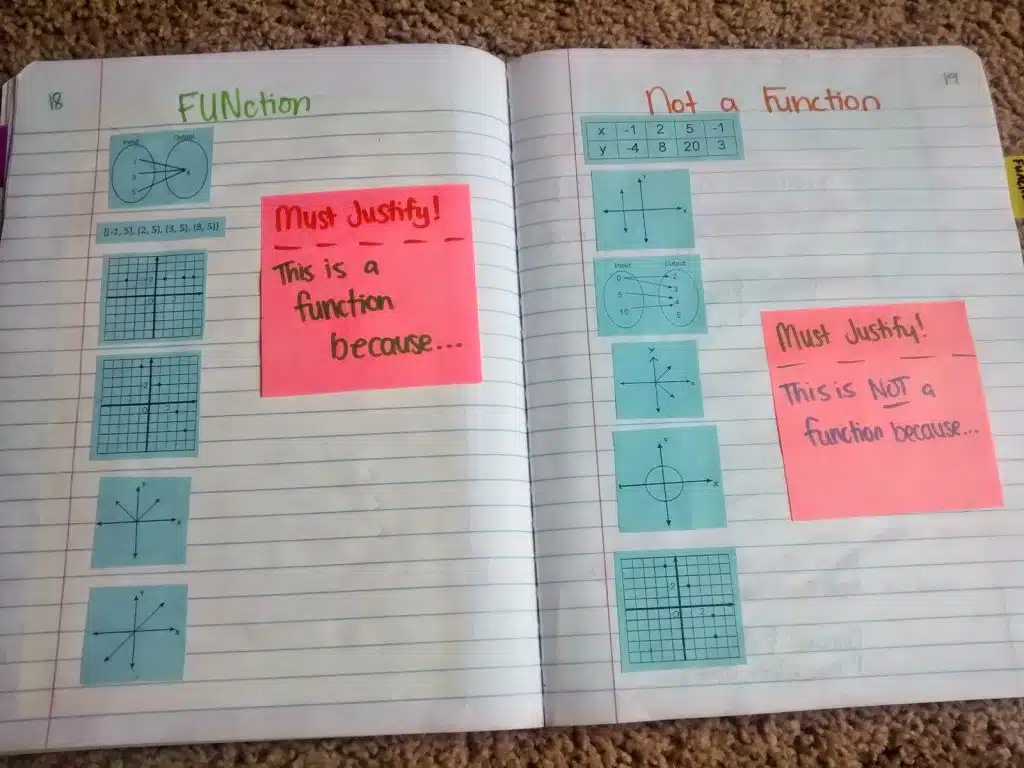 18
FUNction
Input Output
{(-1, 5), (2, 5), (3, 5), (8, 5)}
Must Justify!
This is a
function
because...
y
x
y
x
19
Not a Function
x -1 2 5 -1
y -4 8 20 3
y
x
Input Output
0 2
5 3
10 4
5
y
x
x
2
2
Must Justify!
This is NOT a
function because...